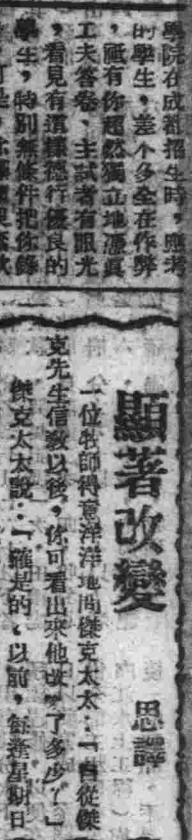 學院在成都招生時，應考
的學生，差个多全在作弊
，祗有你超然獨立地憑真
工夫答卷，主試者有眼光
，看見有這樣德行優良的
學生，特別無條件把你錄
顯著改變
思譯
一位牧師得意洋洋地問傑克太太：「自從傑
克先生信教以後，你可看出來他改變了多少？」
傑克太太說：「確是的，以前，每逢星期日